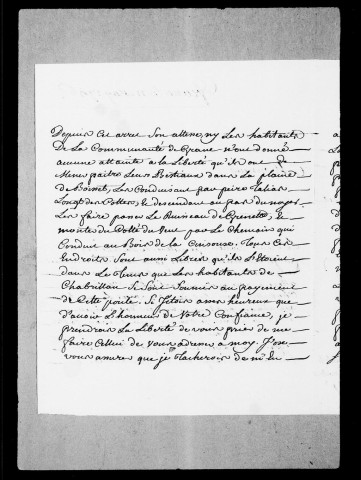 Depuis cet arret Son altese, ny Les habitants
De La Communauté de Grane n'ont donné
aucune attainte a la Liberté qu'ils ont de
Mener paitre Leurs Bestiaux dans La plaine
de Boisset, Les Conduisant par
Long des Cottes, & descendant au pas du noyer
Les faire passer Le Ruisseau de Grenette, &
monter du Cotté du par Le Chemain qui
Conduit au Bois de la Tous Ces
Endroits Sont aussi Libres qu'ils L'étoient
dans Le tems que Les habitants de
Chabrillan Se Sont Soumis au payement
de Cette Si J'étois asses heureux que
d'avoir L'honneur de Votre Confiance, je
prendrois La Liberté de vous prier de me
faire Celluy de vous adresser a moy. J'ose
vous assurer que je tacherois de m'En